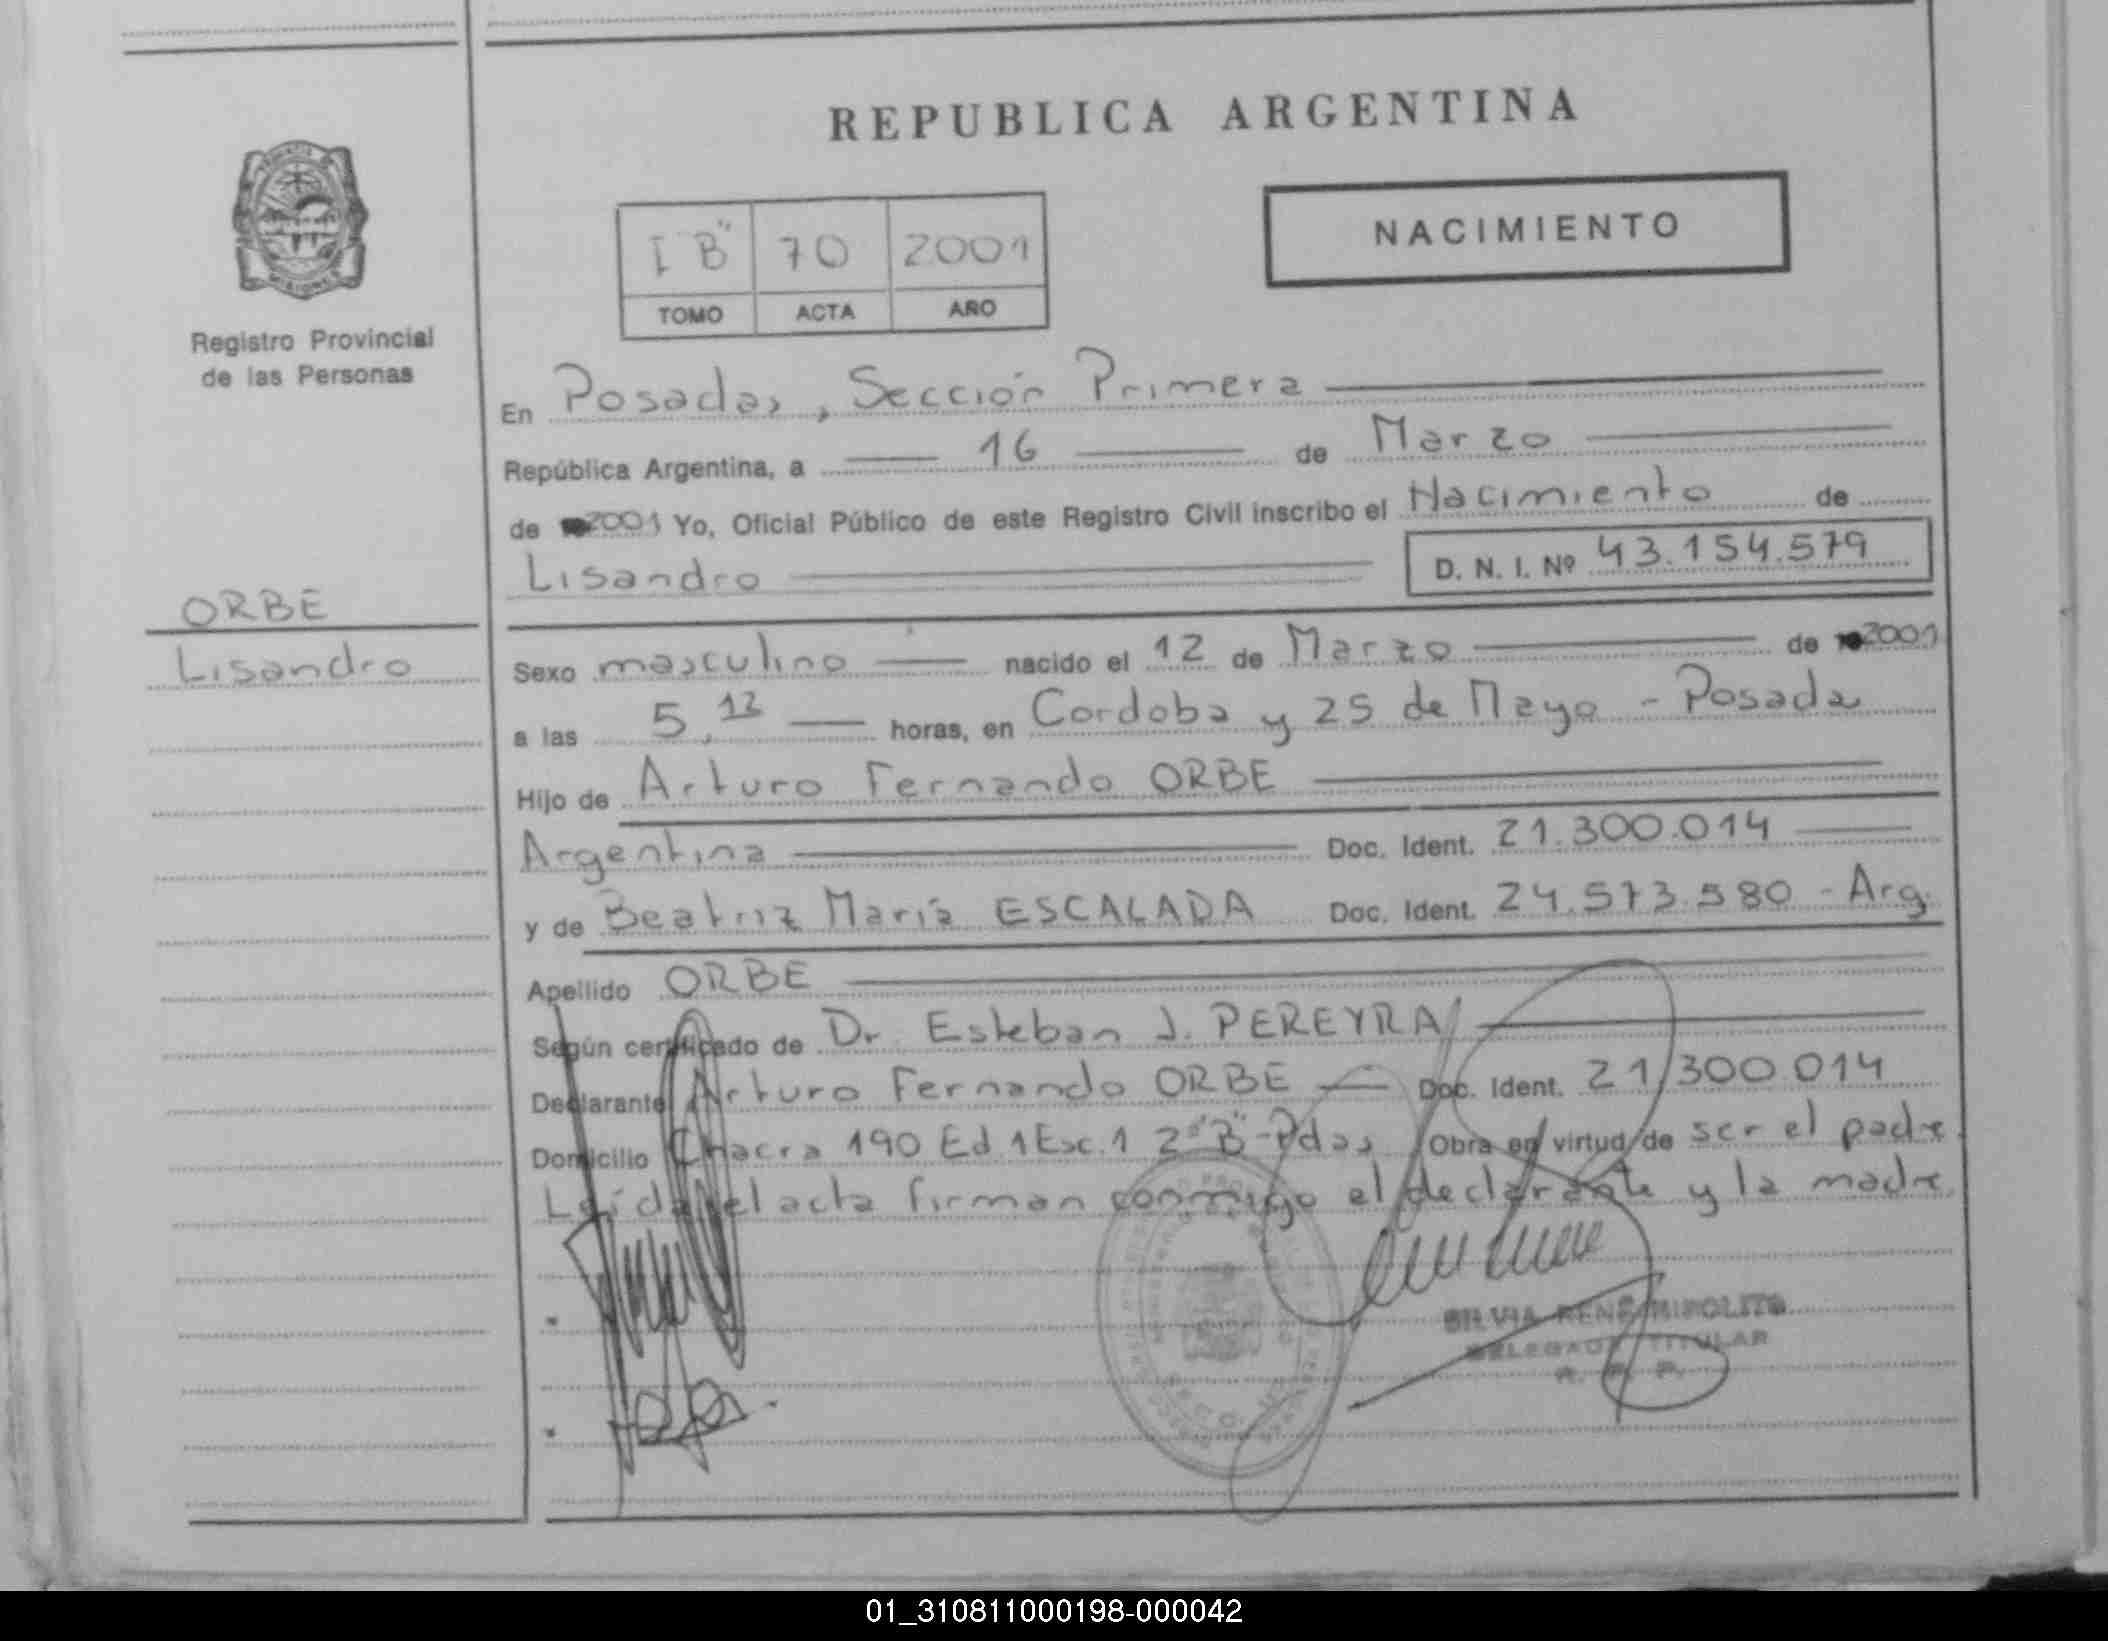 REPUBLICA ARGENTINA
NACIMIENTO
I "B" 70 2001
TOMO ACTA AÑO
Registro Provincial
de las Personas
En Posadas, Sección Primera
República Argentina, a 16 de Marzo
de 2001 Yo, Oficial Público de este Registro Civil inscribo el Nacimiento de
Lisandro D. N. I. Nº 43.154.579
ORBE
Lisandro
Sexo masculino nacido el 12 de Marzo de 2001
a las 5,12 horas, en Cordoba y 25 de Mayo - Posadas
Hijo de Arturo Fernando ORBE
Argentina Doc. Ident. 21.300.014
y de Beatriz María ESCALADA Doc. Ident. 24.573.580 - Arg.
Apellido ORBE
Según certificado de Dr. Esteban J. PEREYRA
Declarante Arturo Fernando ORBE Doc. Ident. 21.300.014
Domicilio Chacra 190 Ed 1 Esc. 1 2º "B" - Pdas Obra en virtud de ser el padre.
Leída el acta firman conmigo el declarante y la madre.
SILVIA RENE HIPOLITO
DELEGADA TITULAR
R. P. P.
01_310811000198-000042